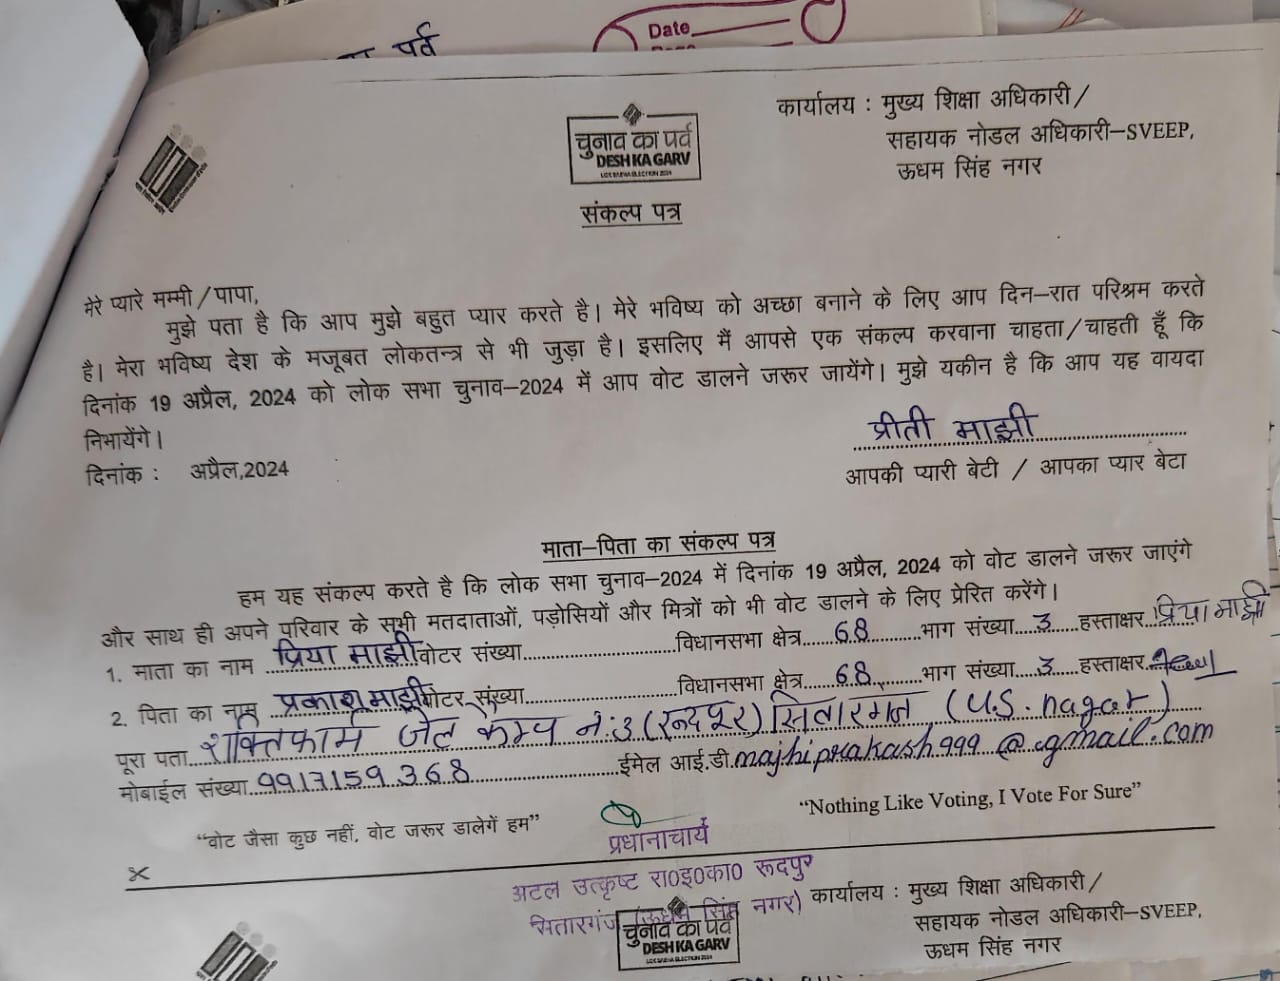 पर्व
Date
कार्यालय : मुख्य शिक्षा अधिकारी/
सहायक नोडल अधिकारी–SVEEP,
ऊधम सिंह नगर
चुनाव का पर्व
DESH KA GARV
LOK SABHA ELECTION 2024
संकल्प पत्र
मेरे प्यारे मम्मी/पापा,
मुझे पता है कि आप मुझे बहुत प्यार करते है। मेरे भविष्य को अच्छा बनाने के लिए आप दिन–रात परिश्रम करते
है। मेरा भविष्य देश के मजूबत लोकतन्त्र से भी जुड़ा है। इसलिए मैं आपसे एक संकल्प करवाना चाहता/चाहती हूँ कि
दिनांक 19 अप्रैल, 2024 को लोक सभा चुनाव–2024 में आप वोट डालने जरूर जायेंगे। मुझे यकीन है कि आप यह वायदा
निभायेंगे।
प्रीती माझी
दिनांक : अप्रैल,2024
आपकी प्यारी बेटी / आपका प्यार बेटा
माता–पिता का संकल्प पत्र
हम यह संकल्प करते है कि लोक सभा चुनाव–2024 में दिनांक 19 अप्रैल, 2024 को वोट डालने जरूर जाएंगे
और साथ ही अपने परिवार के सभी मतदाताओं, पड़ोसियों और मित्रों को भी वोट डालने के लिए प्रेरित करेंगे।
1. माता का नाम प्रिया माझी वोटर संख्या विधानसभा क्षेत्र 68 भाग संख्या 3 हस्ताक्षर प्रिया माझी
2. पिता का नाम प्रकाश माझी वोटर संख्या विधानसभा क्षेत्र 68 भाग संख्या 3 हस्ताक्षर
पूरा पता शक्तिफार्म जेल कैम्प नं:3 (रुद्रपुर) सितारगंज (U.S. nagar)
मोबाईल संख्या 9917159368 ईमेल आई.डी. majhiprakash999@gmail.com
"वोट जैसा कुछ नहीं, वोट जरूर डालेगें हम" "Nothing Like Voting, I Vote For Sure"
प्रधानाचार्य
अटल उत्कृष्ट रा0इ0का0 रूदपुर
सितारगंज (ऊधम सिंह नगर)
कार्यालय : मुख्य शिक्षा अधिकारी/
सहायक नोडल अधिकारी–SVEEP,
ऊधम सिंह नगर
चुनाव का पर्व
DESH KA GARV
LOK SABHA ELECTION 2024